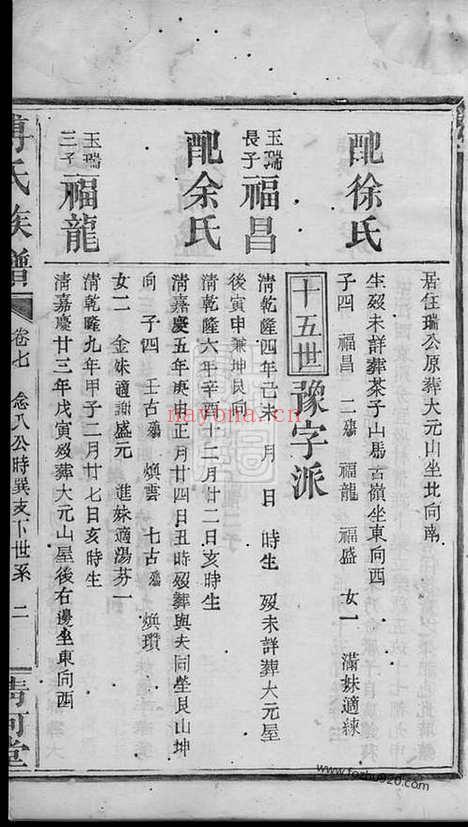 居住瑞公原葬大元山坐北向南
配徐氏
生歿未詳葬茶子山馬古嶺坐東向西
子四 福昌 二殤 福龍 福盛 女一 滿妹適練
十五世 豫字派
玉瑞長子 福昌
清乾隆四年己未 月 日 時生 歿未詳葬大元屋
後寅申兼坤艮向
配余氏
清乾隆六年辛酉十二月廿二日亥時生
清嘉慶五年庚申正月廿四日丑時歿葬與夫同塋艮山坤
向 子四 壬古殤 煥雲 七古殤 煥瓚
女二 金妹適謝盛元 進妹適湯芬一
玉瑞三子 福龍
清乾隆九年甲子二月廿七日亥時生
清嘉慶廿三年戊寅歿葬大元山屋後右邊坐東向西
氏族譜
卷七 念八公時巽支下世系 二
清河堂
nayona.cn
www.fozhu920.com